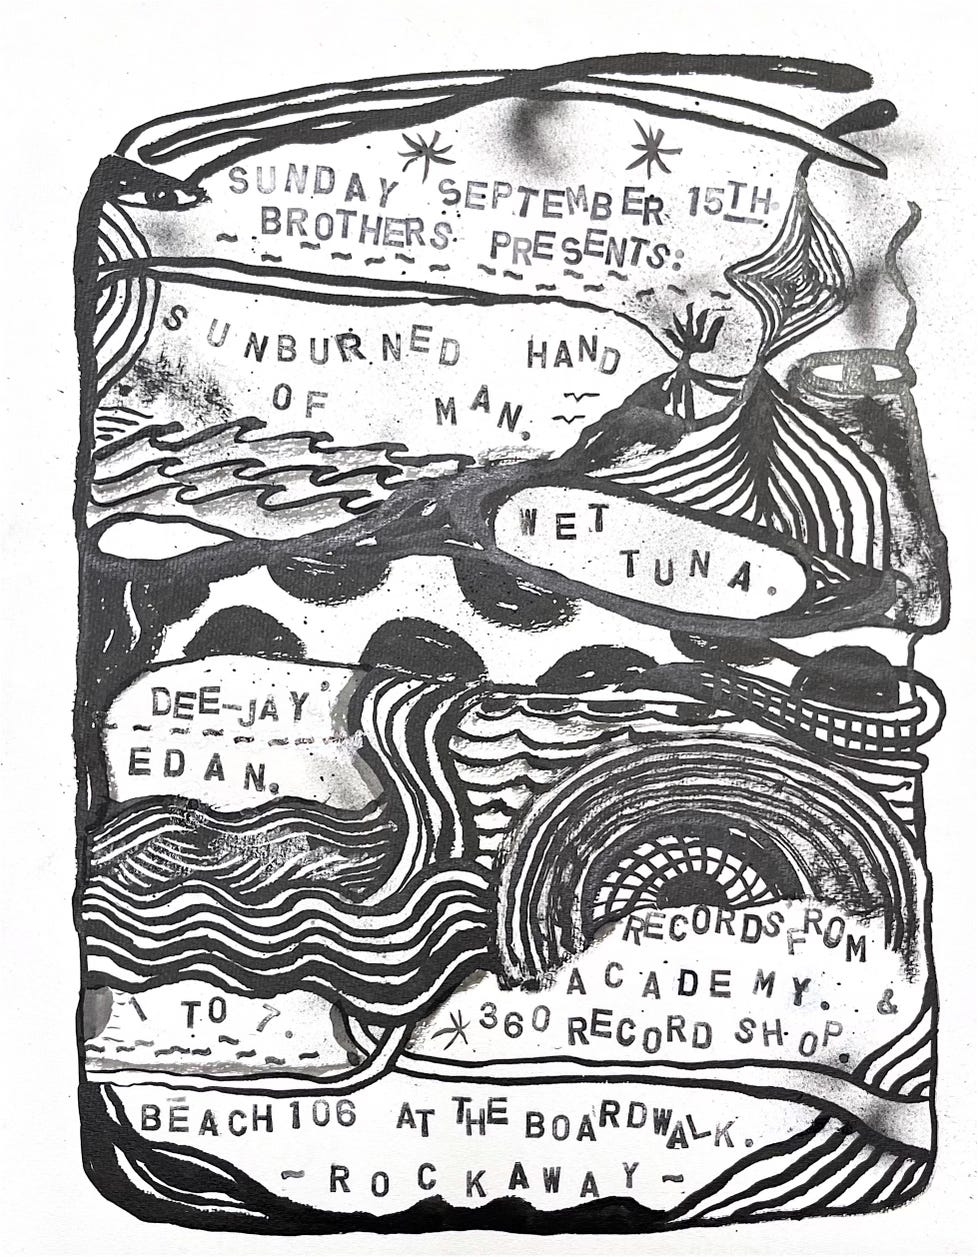 SUNDAY SEPTEMBER 15TH
BROTHERS PRESENTS:
SUNBURNED HAND
OF MAN.
WET
TUNA.
DEE-JAY
EDAN.
RECORDS FROM
ACADEMY. &
360 RECORD SHOP.
1 TO 7.
BEACH 106 AT THE BOARDWALK.
~ROCKAWAY~